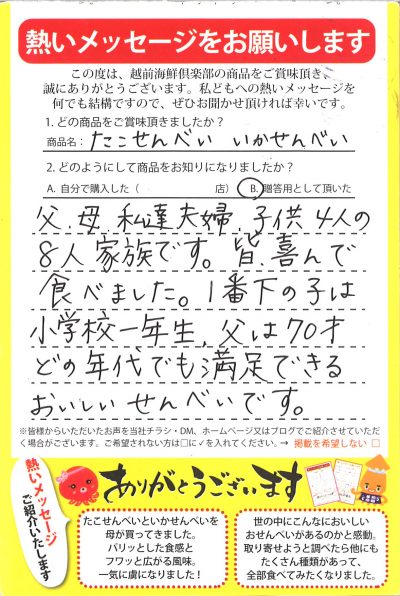 熱いメッセージをお願いします
この度は、越前海鮮倶楽部の商品をご賞味頂き、
誠にありがとうございます。私どもへの熱いメッセージを
何でも結構ですので、ぜひお聞かせ頂ければ幸いです。
1. どの商品をご賞味頂きましたか?
商品名: たこせんべい いかせんべい
2. どのようにして商品をお知りになりましたか?
A. 自分で購入した( 店) B. 贈答用として頂いた
父、母、私達夫婦 子供4人の
8人家族です。皆、喜んで
食べました。1番下の子は
小学校一年生、父は70才
どの年代でも満足できる
おいしいせんべいです。
※皆様からいただいたお声を当社チラシ・DM、ホームページ又はブログでご紹介させていただ
く場合がございます。ご希望されない方は□に✓を入れてください。→ 掲載を希望しない □
熱いメッセージ
ご紹介いたします
ありがとうございます
たこせんべいといかせんべいを
母が買ってきました。
パリッとした食感と
フワッと広がる風味。
一気に虜になりました!
世の中にこんなにおいしい
おせんべいがあるのかと感動。
取り寄せようと調べたら他にも
たくさん種類があって、
全部食べてみたくなりました。